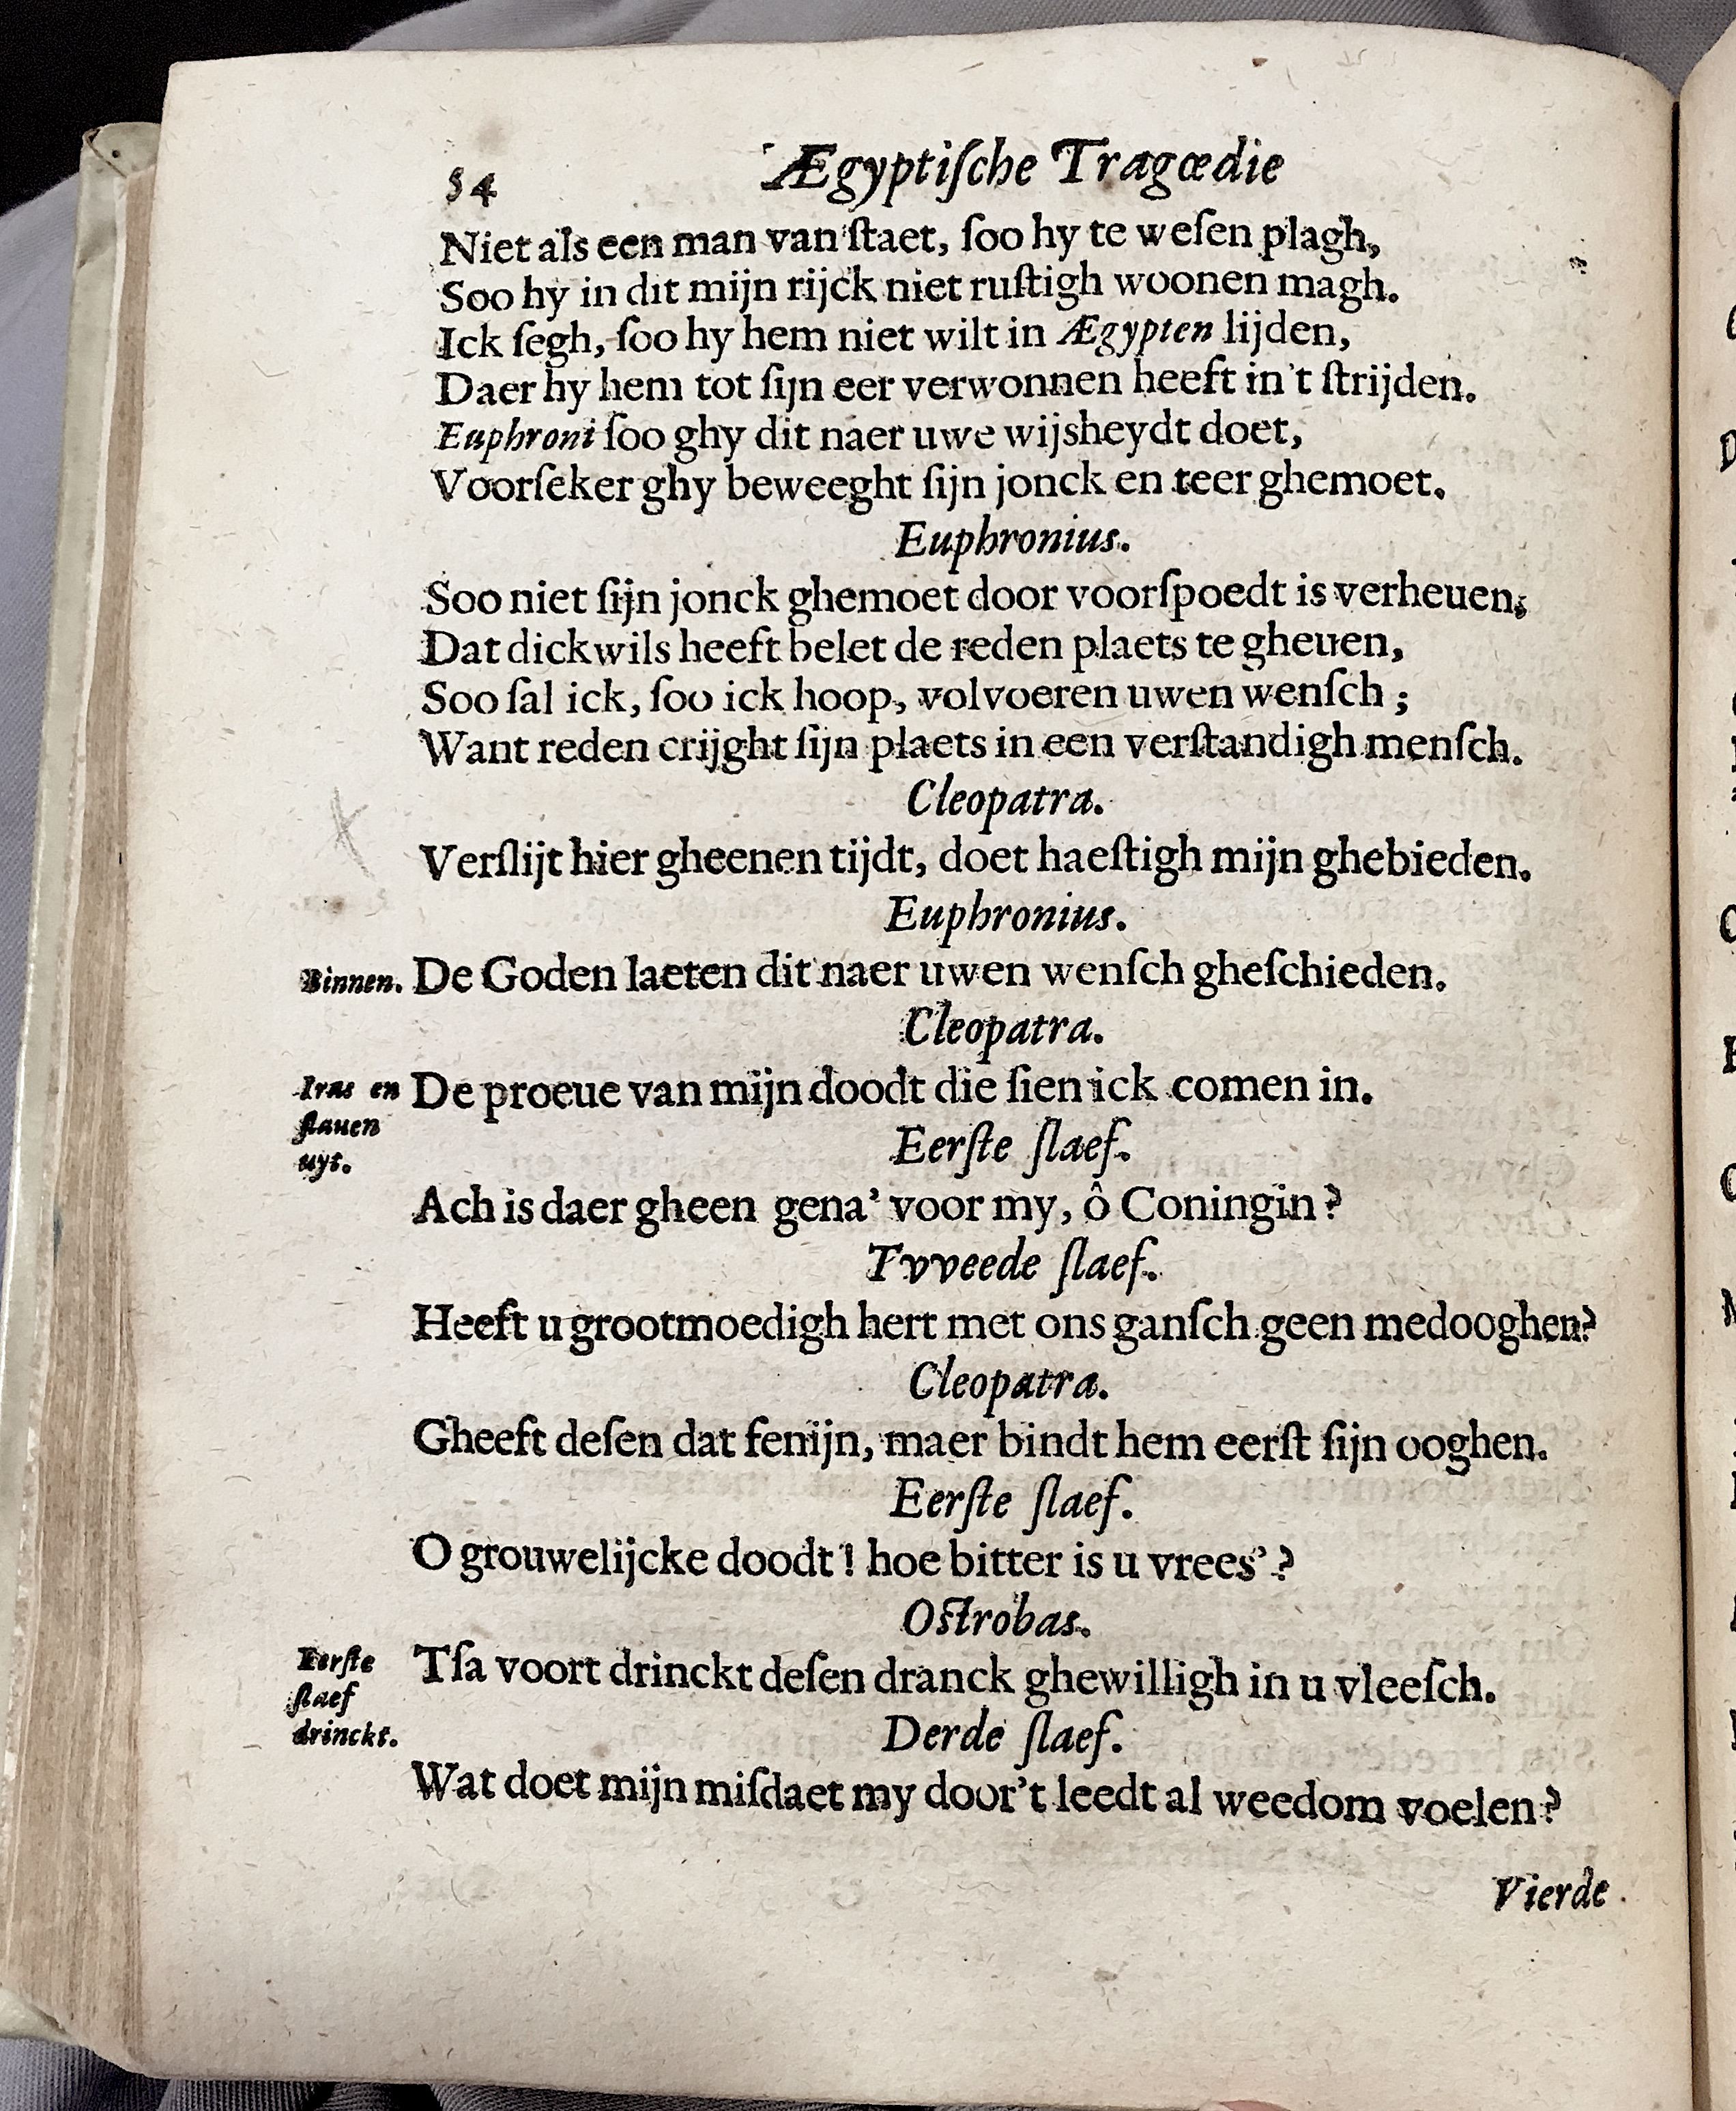 54 Ægyptiſche Tragœdie
Niet als een man van ſtaet, ſoo hy te weſen plagh,
Soo hy in dit mijn rijck niet ruſtigh woonen magh.
Ick ſegh, ſoo hy hem niet wilt in Ægypten lijden,
Daer hy hem tot ſijn eer verwonnen heeft in't ſtrijden.
Euphroni ſoo ghy dit naer uwe wijsheydt doet,
Voorſeker ghy beweeght ſijn jonck en teer ghemoet.
Euphronius.
Soo niet ſijn jonck ghemoet door voorſpoedt is verheuen;
Dat dickwils heeft belet de reden plaets te gheuen,
Soo ſal ick, ſoo ick hoop, volvoeren uwen wenſch;
Want reden crijght ſijn plaets in een verſtandigh menſch.
Cleopatra.
Verſlijt hier gheenen tijdt, doet haeſtigh mijn ghebieden.
Euphronius.
Binnen. De Goden laeten dit naer uwen wenſch gheſchieden.
Cleopatra.
Iras en De proeue van mijn doodt die ſien ick comen in.
ſlauen
uyt.
Eerſte ſlaef.
Ach is daer gheen gena' voor my, ô Coningin?
Tvveede ſlaef.
Heeft u grootmoedigh hert met ons ganſch geen medooghen?
Cleopatra.
Gheeft deſen dat fenijn, maer bindt hem eerſt ſijn ooghen.
Eerſte ſlaef.
O grouwelijcke doodt! hoe bitter is u vrees'?
Oſtrobas.
Eerſte Tſa voort drinckt deſen dranck ghewilligh in u vleeſch.
ſlaef
drinckt.
Derde ſlaef.
Wat doet mijn miſdaet my door't leedt al weedom voelen?
Vierde